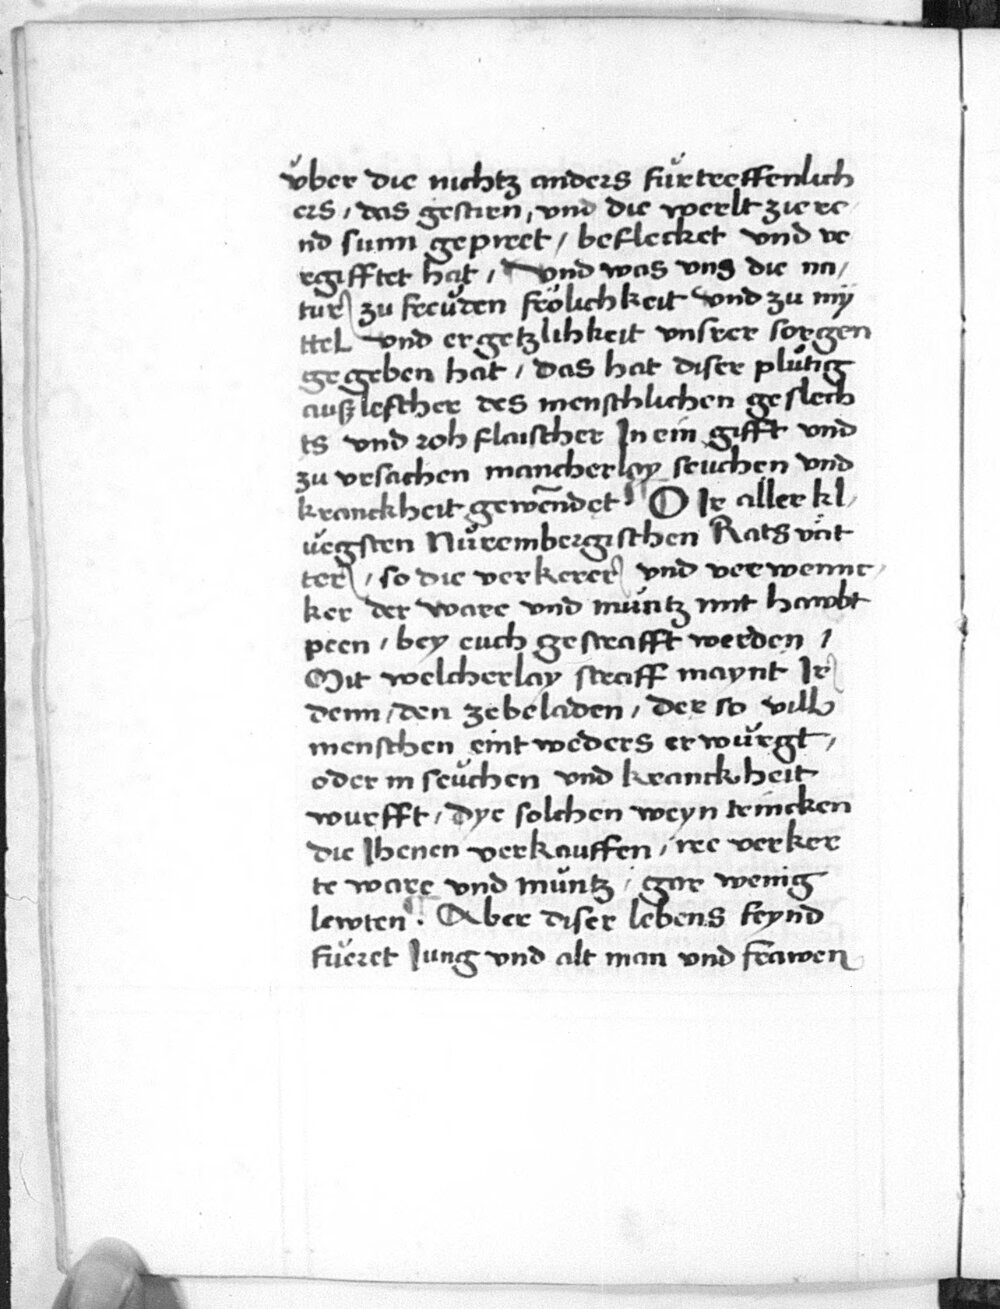 über die nichtz anders fürtreffenlich
ers, das gestirn, vnd die werlt ziere
nd sunn gepreet / beflecket vnd ve
rgifftet hat / vnd was vns die na/
tur zu freüden frölichkeit vnd zu mÿ
ttel vnd ergetzlihkeit vnsrer sorgen
gegeben hat / das hat diser plütig
außlescher des menschlichen geslech
ts vnd roh flaischer In ein gifft vnd
zu vrsachen mancherlay seuchen vnd
kranckheit gewēndet ¶ O Ir aller kl/
üegsten Nürembergischen Rats vät
ter / so die verkerer vnd verwennc/
ker der ware vnd müntz mit hawbt
peen / bey euch gestrafft werden /
Mit welcherlay straff maynt Ir
denn / den zebeladen / der so vill
menschen eintweders erwürgt /
oder in seüchen vnd kranckheit
wurfft / dye solchen weyn trincken
die Jhenen verkauffen / ire verker
te ware vnd müntz / gar wenig
lewten ¶. Aber diser lebens feynd
füeret Jung vnd alt man vnd frawen